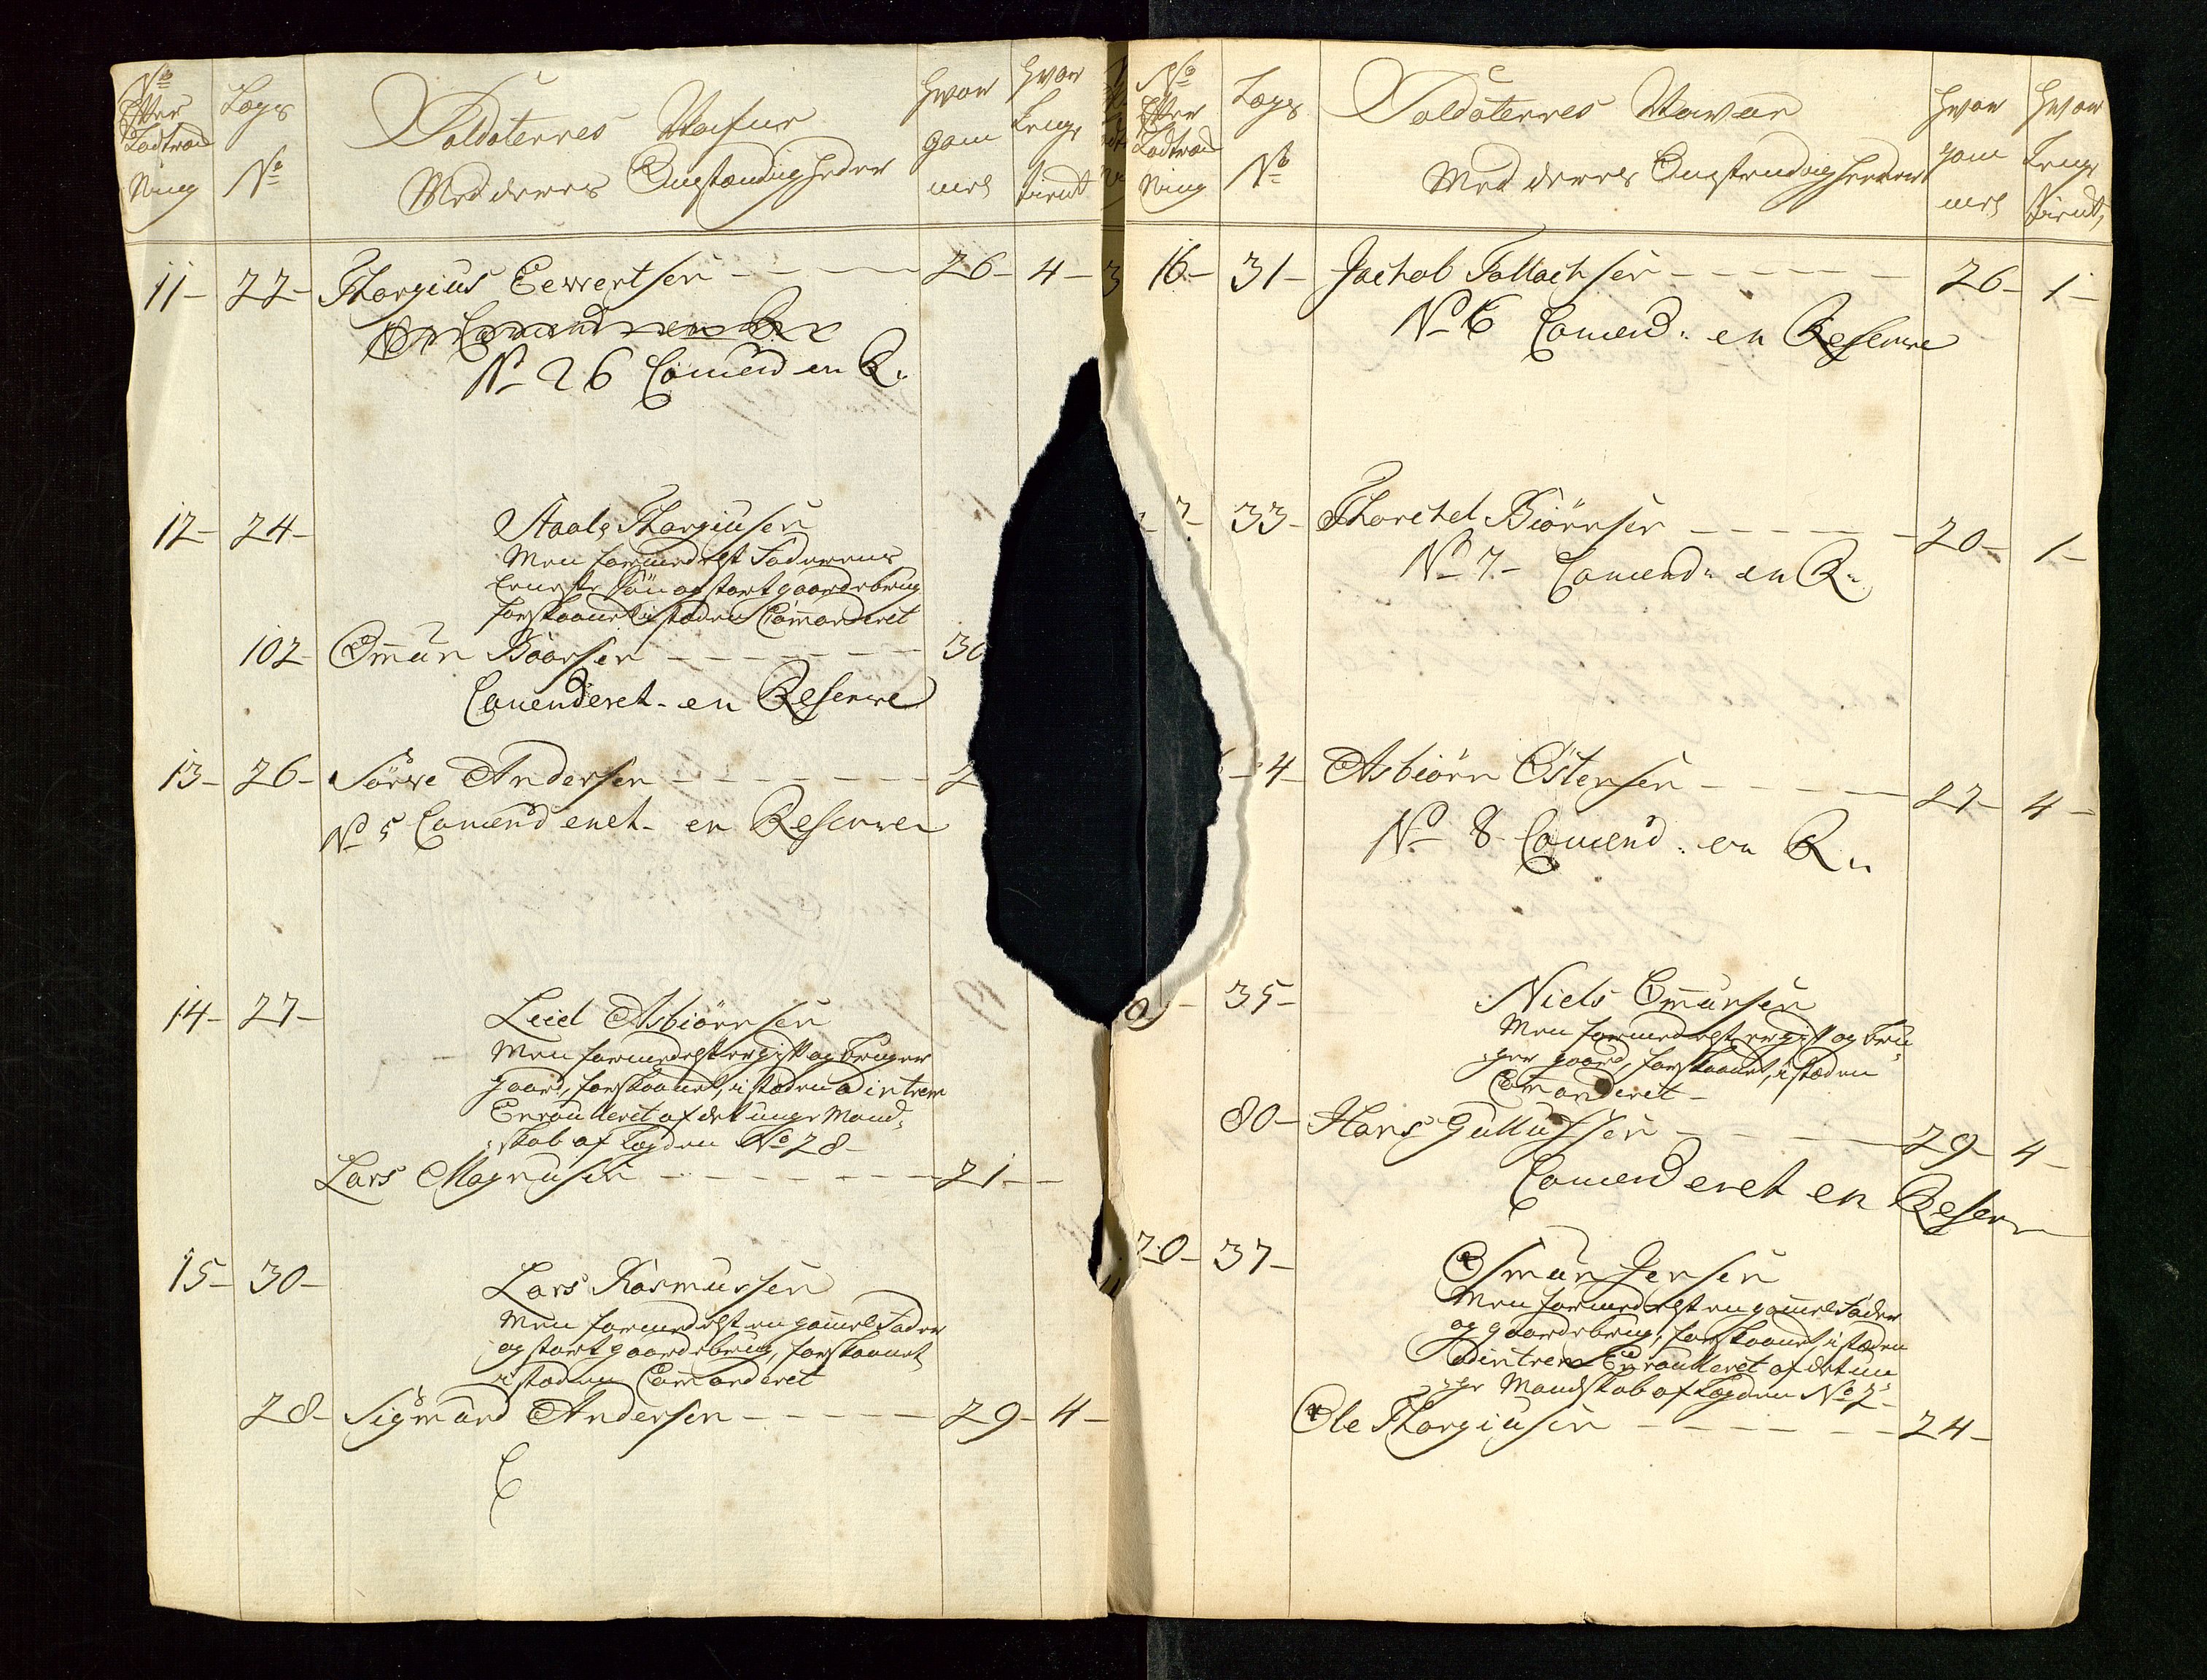 No
Efter
Lodtræk
ning
Legs
No
Soldaternes Nafne
Med deres Omstændigheder
Hvor
gam
mel
Hvor
lenge
tient
11- 22- Thorgius Eewertsen - - - 26- 4-
No 26 Comend en R.
12- 24- Staale Thorgiusen
Men formedelst Faderens
eeneste Søn og stort gaardebrug
forskaanet i stæden Commanderet
102- Omund Boorsen - - - 30
Comenderet- en Reserwe
13- 26- Sörwe Andersen - - - 2
No 5 Comenderet- en Reserwe
14- 27- Leiel Asbiörnsen
Men formedelst er gift og bruger
gaard, forskaanet, i stæden ad intrem
Enroulleret af det unge Mand-
skab af Legden No 28-
Lars Magnusen - - - 21-
15- 30- Lars Rasmussen
Men formedelst en gammel Fader
og stort gaardebrug, forskaanet
i stæden Commanderet
28- Sigmund Andersen - - - 29- 4-
C
No
Efter
Lodtræk
ning
Legs
No
Soldaternes Navne
Med deres Omstendigheder
Hvor
gam
mel
Hvor
lenge
tient
16- 31- Jachob Follachsen - - - 26- 1-
No 6 Comend: en Reserwe
7- 33- Thorchel Biörnsen - - - 20- 1-
No 7- Comend: en R:
4- Asbiörn Östensen - - - 27- 4-
No 8 Comend: en R:
35- Niels Omundsen
Men formedelst er gift og bru-
ger gaard, forskaanet, i stæden
Commanderet-
80- Hans Gulluchsen - - - 29- 4-
Comenderet en Reserw
20- 37- Osmun Jensen
Men formedelst en gammel Fader
og gaardebrug, forskaanet, i stæden
ad intrem Enroulleret af det un-
ge Mandskab af Legden No 2-
Ole Thorgiusen - - - 24-